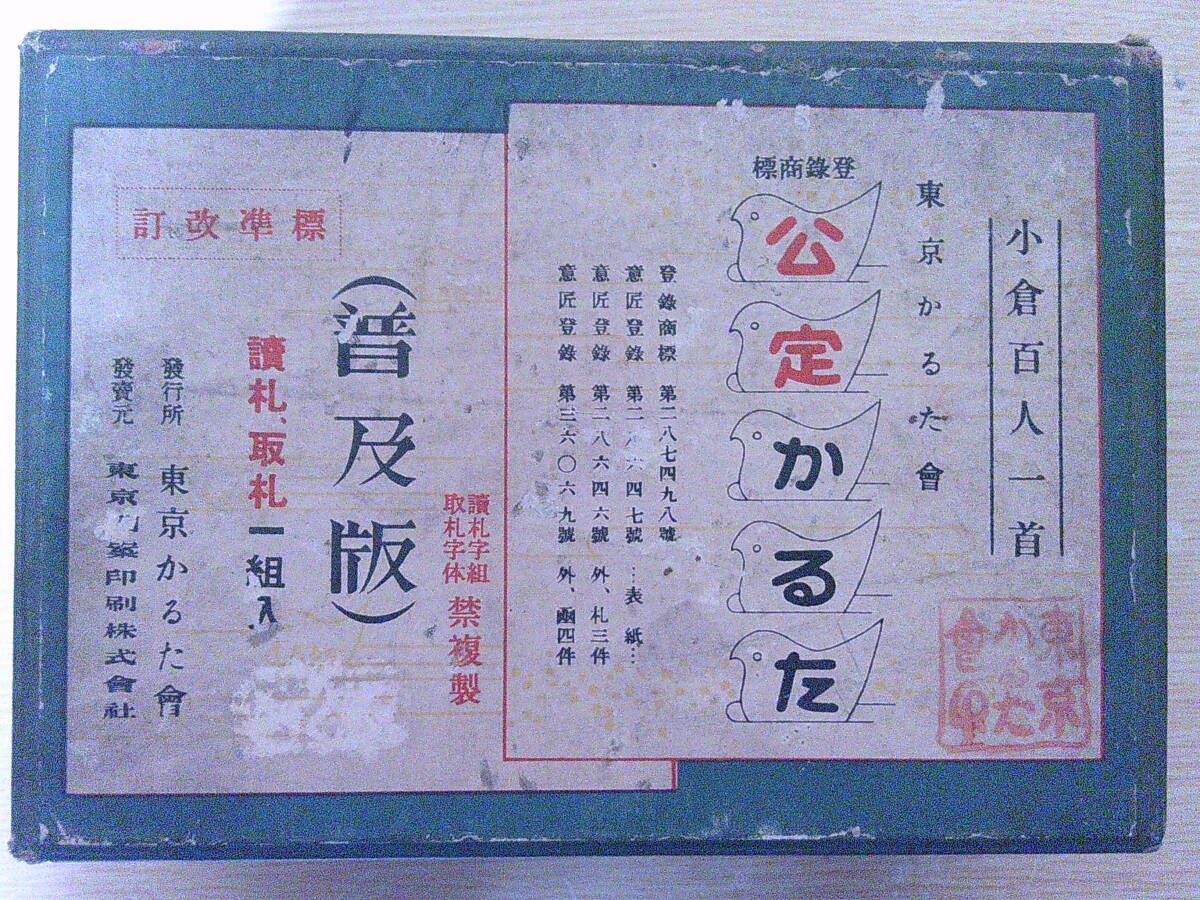 小倉百人一首
東京かるた會
登錄商標
公定かるた
登錄商標 第二八七四九八號
意匠登錄 第二八六四七號…表紙…
意匠登錄 第二八六四六號 外、札三件
意匠登錄 第三六〇六九號 外、凾四件
東京かるた會印
讀札字組
取札字体
禁複製
(普及版)
標準改訂
讀札、取札一組入
發行所 東京かるた會
發賣元 東京築印刷株式會社